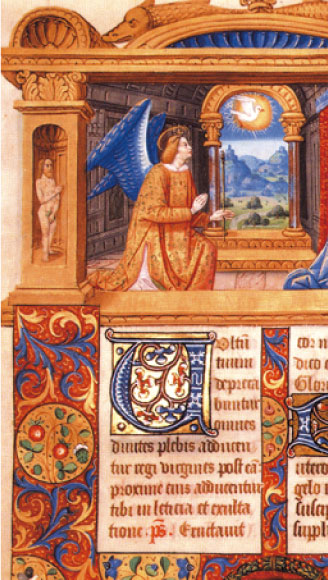 Voltū
tuum
depreca
buntur
omnes
diuites plebis adducen
tur regi uirgines post eā
proxime eius adducentur
tibi in leticia et exulta
tione. ps. Eructauit
cor
dico e
Glor
gelo
suscip
suppl